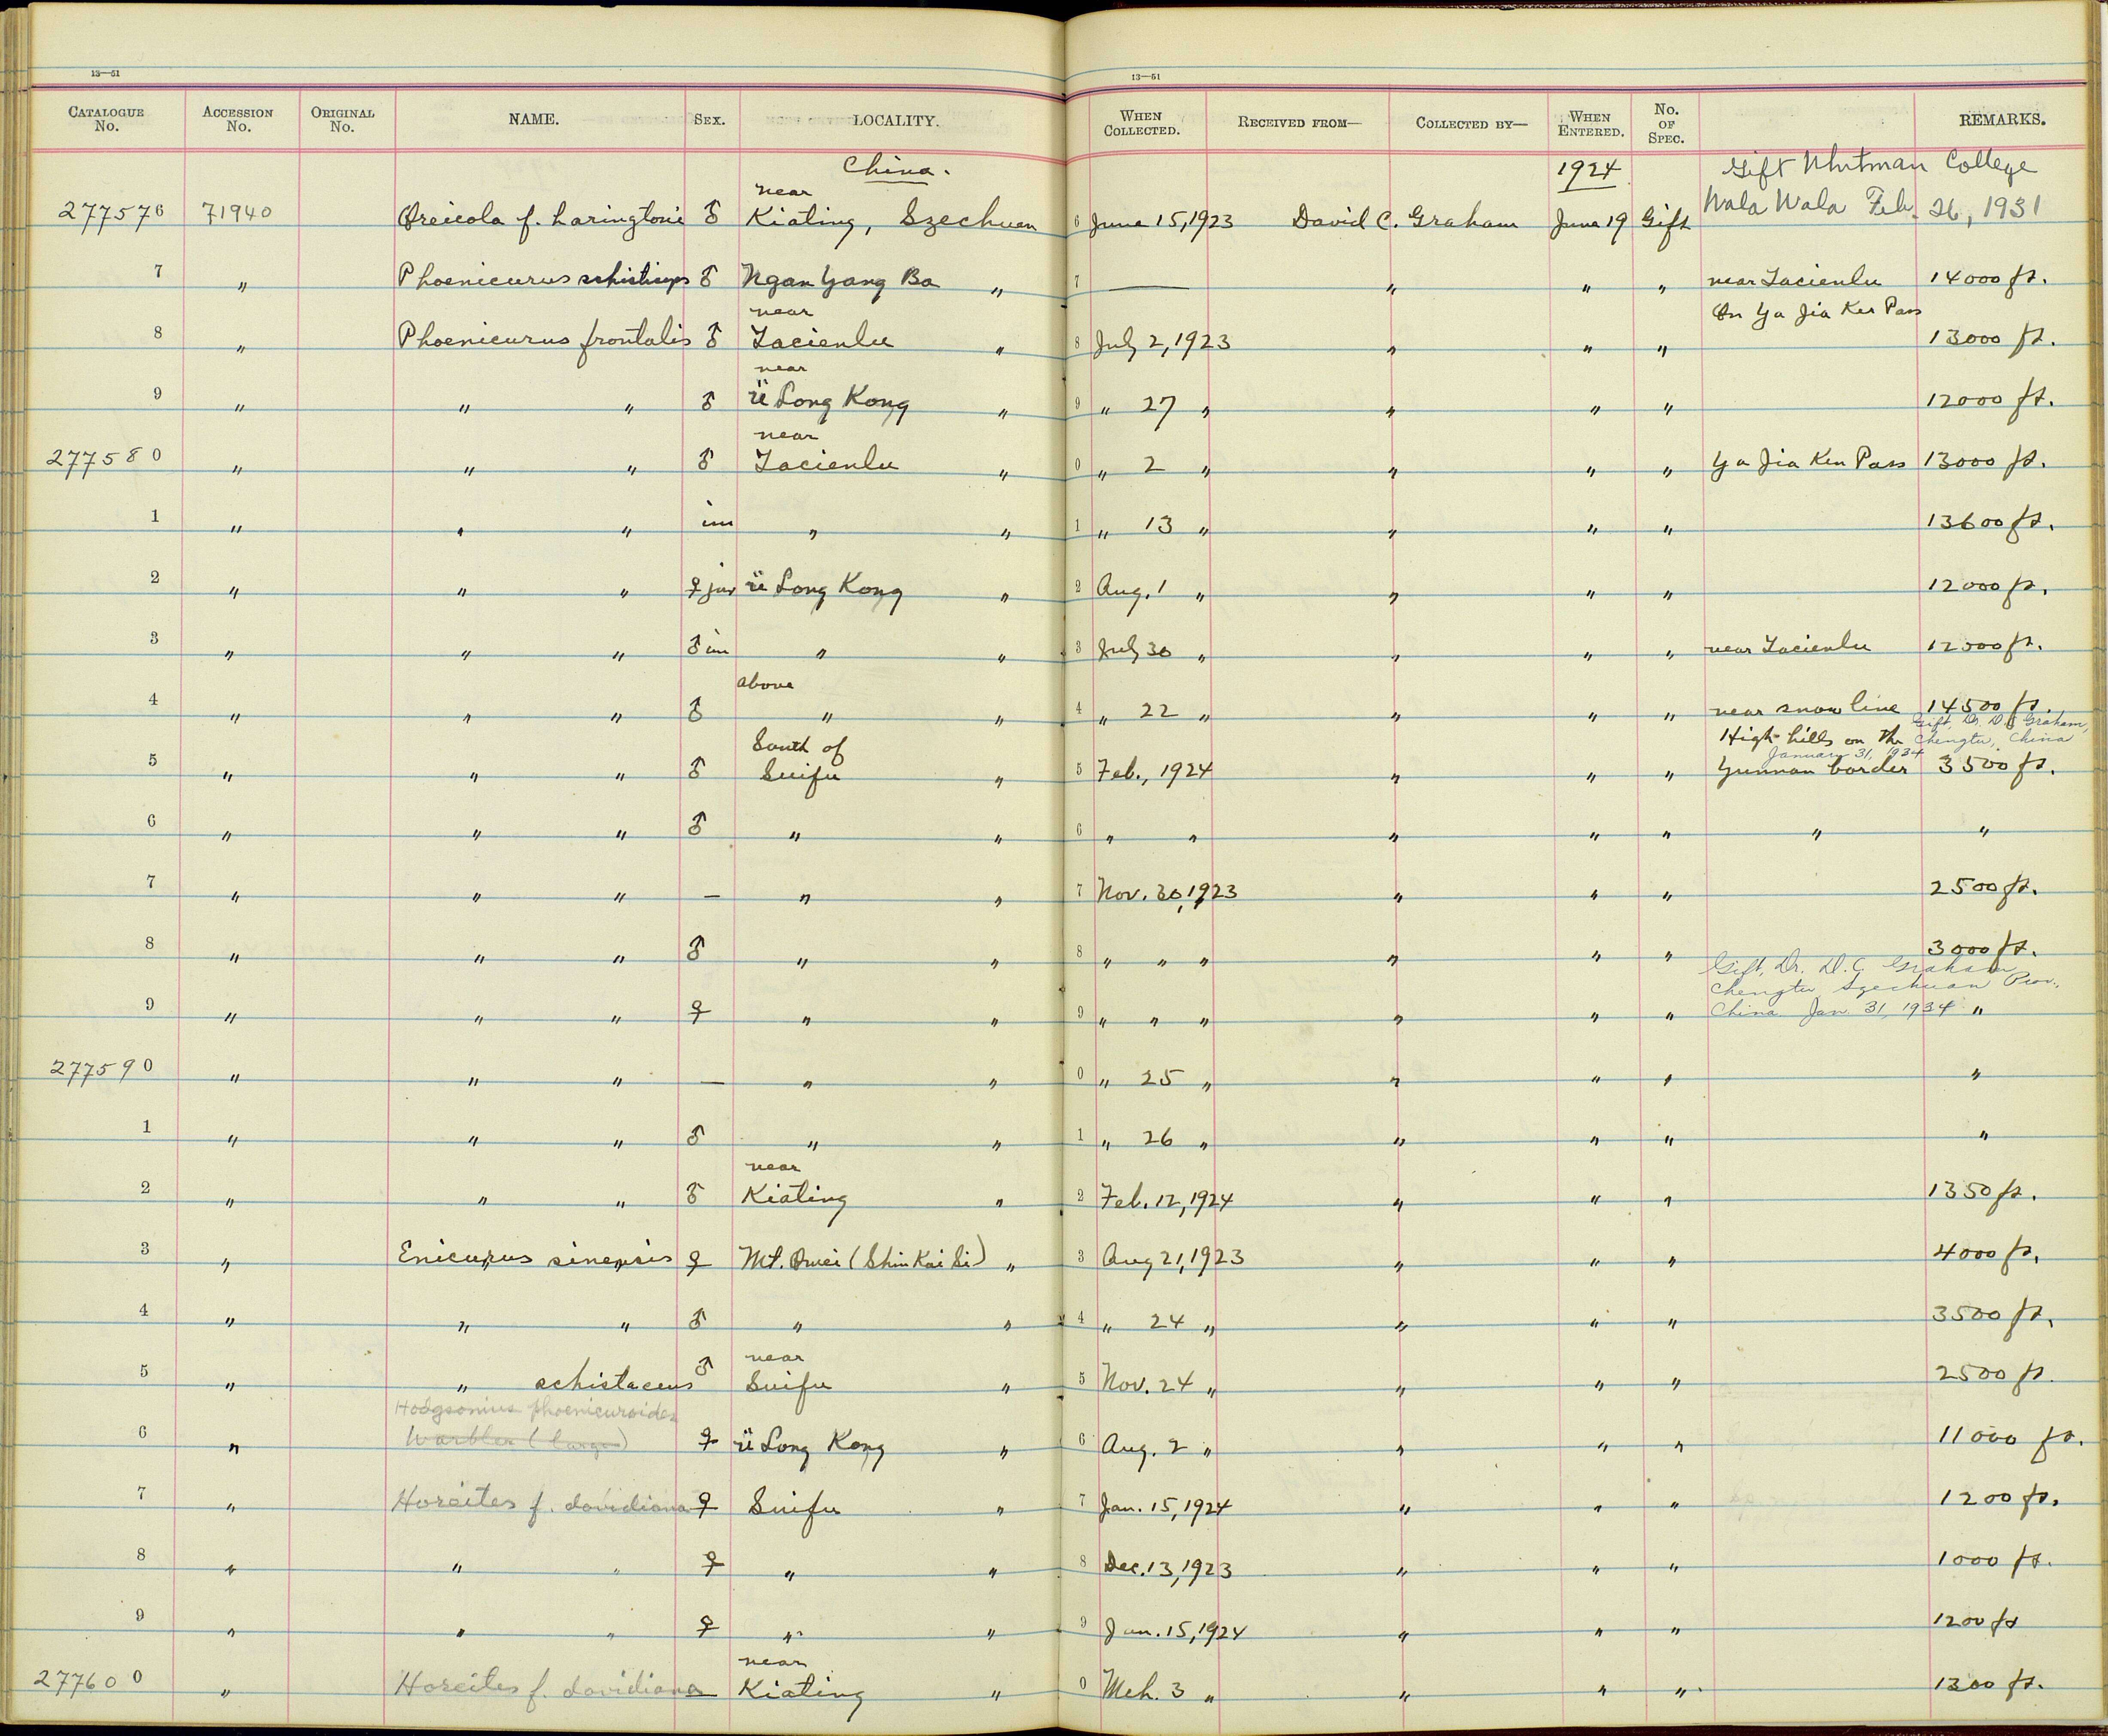 13—51 13—51
CATALOGUE No. ACCESSION No. ORIGINAL No. NAME. SEX. LOCALITY. WHEN COLLECTED. RECEIVED FROM— COLLECTED BY— WHEN ENTERED. No. OF SPEC. REMARKS.
China. 1924 Gift Whitman College
near Wala Wala Feb. 26, 1931
277576 71940 Oreicola f. haringtoni ♂ Kiating, Szechuan 6 June 15, 1923 David C. Graham June 19 Gift
7 " Phoenicurus schisticeps ♂ Ngan Yang Ba " 7 — " " " near Tacienlu 14000 ft.
near On Ya Jia Ken Pass
8 " Phoenicurus frontalis ♂ Tacienlu " 8 July 2, 1923 " " " 13000 ft.
near
9 " " " ♂ Ü Long Kong " 9 " 27 " " " " 12000 ft.
near
277580 " " " ♂ Tacienlu " 0 " 2 " " " " Ya Jia Ken Pass 13000 ft.
1 " " " im " " 1 " 13 " " " " 13600 ft.
2 " " " ♀ juv Ü Long Kong " 2 Aug. 1 " " " " 12000 ft.
3 " " " ♂ im " " 3 July 30 " " " " near Tacienlu 12000 ft.
above
4 " " " ♂ " " 4 " 22 " " " " near snow line 14500 ft.
Gift, Dr. D. C. Graham,
South of High hills on the Chengtu, China
January 31, 1934
5 " " " ♂ Suifu " 5 Feb., 1924 " " " Yunnan border 3500 ft.
6 " " " ♂ " " 6 " " " " " " "
7 " " " — " " 7 Nov. 30, 1923 " " " 2500 ft.
8 " " " ♂ " " 8 " " " " " " 3000 ft.
Gift, Dr. D. C. Graham
Chengtu Szechuan Prov.,
9 " " " ♀ " " 9 " " " " " " China Jan. 31, 1934 "
277590 " " " — " " 0 " 25 " " " " "
1 " " " ♂ " " 1 " 26 " " " " "
near
2 " " " ♂ Kiating " 2 Feb. 12, 1924 " " " 1350 ft.
3 " Enicurus sinensis ♀ Mt. Omei (Shin Kai Si) " 3 Aug 21, 1923 " " " 4000 ft.
4 " " " ♂ " " 4 " 24 " " " " 3500 ft.
near
5 " " schistaceus ♂ Suifu " 5 Nov. 24 " " " " 2500 ft.
Hodgsonius phoenicuroides
6 " Warbler (large) ♀ Ü Long Kong " 6 Aug. 2 " " " " 11000 ft.
7 " Horeites f. davidiana ♀ Suifu " 7 Jan. 15, 1924 " " " 1200 ft.
8 " " " ♀ " " 8 Dec. 13, 1923 " " " 1000 ft.
9 " " " ♀ " " 9 Jan. 15, 1924 " " " 1200 ft
near
277600 " Horeites f. davidiana — Kiating " 0 Mch. 3 " " " " 1300 ft.